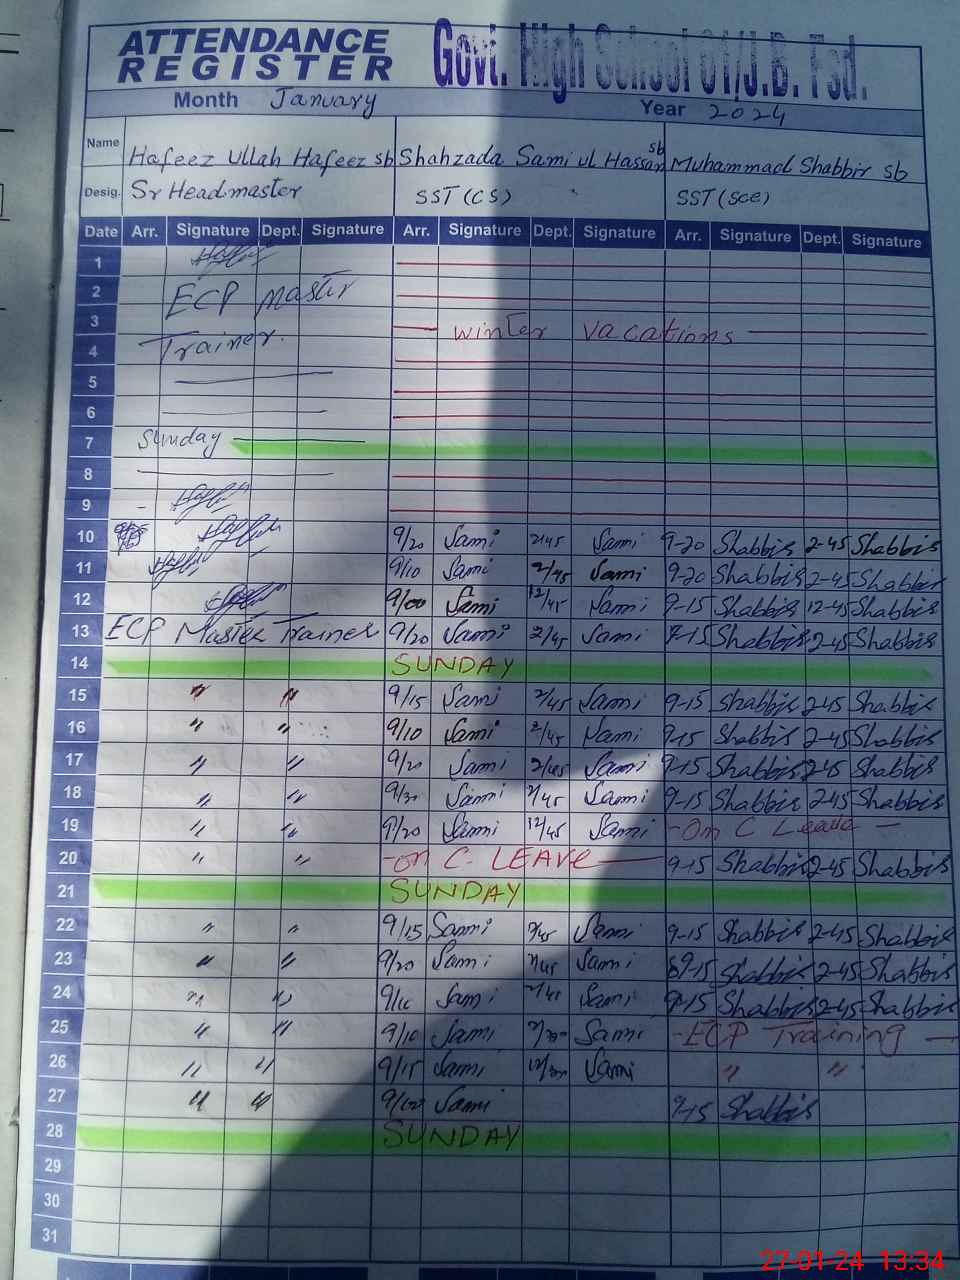 ATTENDANCE REGISTER Govt. High School 61/J.B. Fsd.
Month January Year 2024
Name Hafeez Ullah Hafeez sb Shahzada Sami ul Hassan sb Muhammad Shabbir sb
Desig. Sr Headmaster SST (CS) SST (Sce)
Date Arr. Signature Dept. Signature Arr. Signature Dept. Signature Arr. Signature Dept. Signature
1
2 ECP Master
3 winter vacations
4 Trainer.
5
6
7 Sunday
8
9
10 9/20 Sami 2/45 Sami 9-20 Shabbir 2-45 Shabbir
11 9/10 Sami 2/45 Sami 9-20 Shabbir 2-45 Shabbir
12 9/00 Sami 12/45 Sami 9-15 Shabbir 12-45 Shabbir
13 ECP Master Trainer 9/20 Sami 2/45 Sami 9-15 Shabbir 2-45 Shabbir
14 SUNDAY
15 " " 9/15 Sami 2/45 Sami 9-15 Shabbir 2-45 Shabbir
16 " " 9/10 Sami 2/45 Sami 9-15 Shabbir 2-45 Shabbir
17 " " 9/20 Sami 2/45 Sami 9-15 Shabbir 2-45 Shabbir
18 " " 9/20 Sami 2/45 Sami 9-15 Shabbir 2-45 Shabbir
19 " " 9/20 Sami 12/45 Sami - On C Leave -
20 " " - on C. LEAVE - 9-15 Shabbir 2-45 Shabbir
21 SUNDAY
22 " " 9/15 Sami 2/45 Sami 9-15 Shabbir 2-45 Shabbir
23 " " 9/20 Sami 2/45 Sami 9-15 Shabbir 2-45 Shabbir
24 " " 9/10 Sami 2/45 Sami 9-15 Shabbir 2-45 Shabbir
25 " " 9/10 Sami Sami - ECP Training -
26 " " 9/15 Sami Sami " "
27 " " 9/00 Sami 9-15 Shabbir
28 SUNDAY
29
30
31
27-01-24 13:34